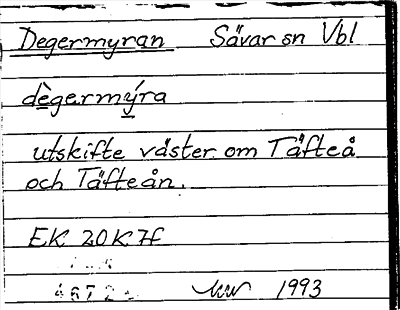 Degermyran Sävar sn Vbl
dègermýra
utskifte väster om Täfteå
och Täfteån.
EK 20K7f
1993